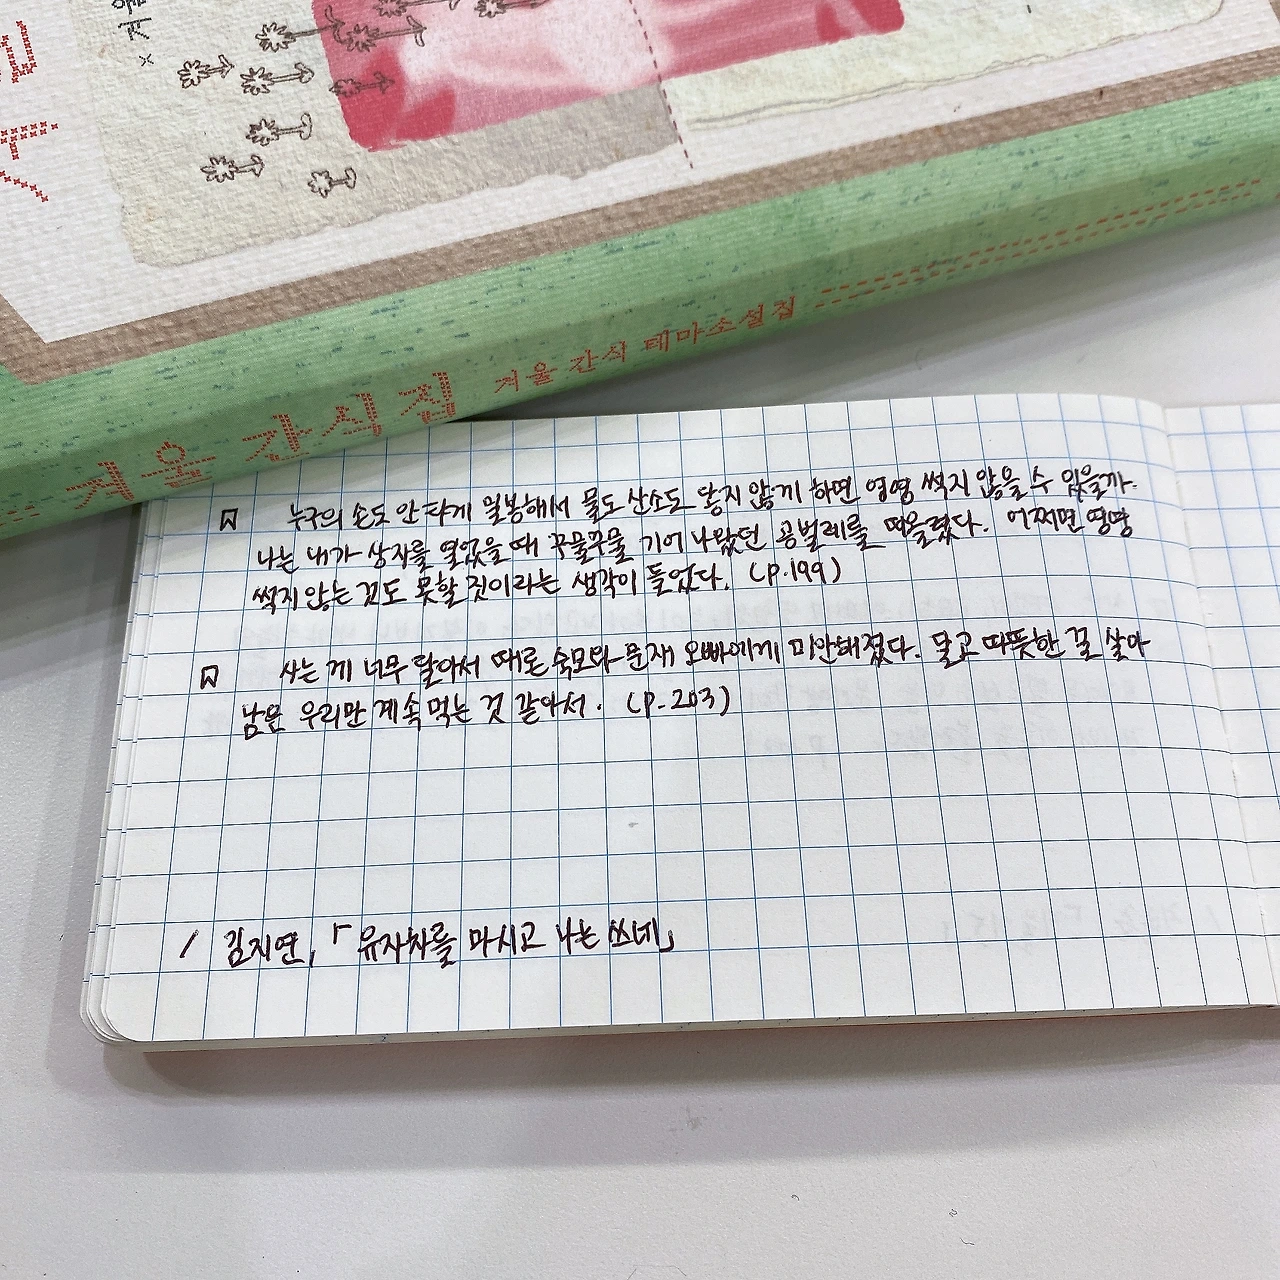 × 겨울
겨울 간식집 겨울 간식 테마소설집
누구의 손도 안 타게 밀봉해서 물도 산소도 닿지 않게 하면 영영 썩지 않을 수 있을까.
나는 내가 상자를 열었을 때 꾸물꾸물 기어 나왔던 공벌레를 떠올렸다. 어쩌면 영영
썩지 않는 것도 못할 짓이라는 생각이 들었다. (p.199)
사는 게 너무 달아서 때로 숙모와 문재 오빠에게 미안해졌다. 달고 따뜻한 꿀 살아
남은 우리만 계속 먹는 것 같아서. (p.203)
/ 김지연, 「유자차를 마시고 나는 쓰네」